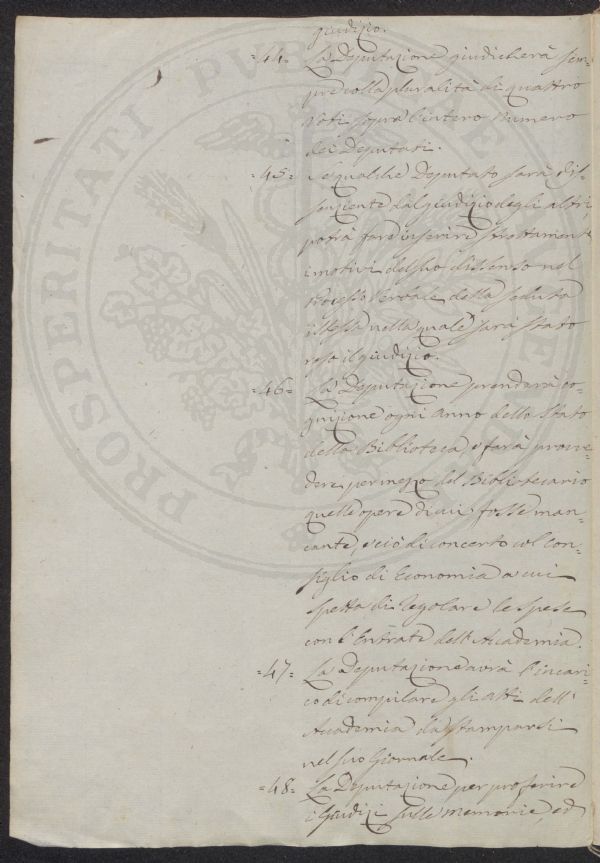 giudizio.
=44= La Deputazione giudicherà sem=
pre colla pluralità di quattro
Voti sopra l'intero Numero
dei Deputati.
=45= Se qualche Deputato sarà dis=
senziente dal giudizio degli altri
potrà fare inserire strettamente
i motivi del suo dissenso nel
Processo Verbale della seduta
istessa nella quale sarà stato
reso il giudizio.
=46= La Deputazione prenderà co=
gnizione ogni Anno dello Stato
della Biblioteca e farà provve=
dere per mezzo del Bibliotecario
quelle opere di cui fosse man=
cante, e ciò di concerto col Con=
siglio di Economia a cui
spetta di regolare le spese
con l'Entrate dell'Accademia.
=47= La Deputazione avrà l'incari=
co di compilare gli Atti dell'
Accademia da Stamparsi
nel suo Giornale.
=48= La Deputazione per proferire
i Giudizi sulle memorie ed
PROSPERITATI PUBLICAE